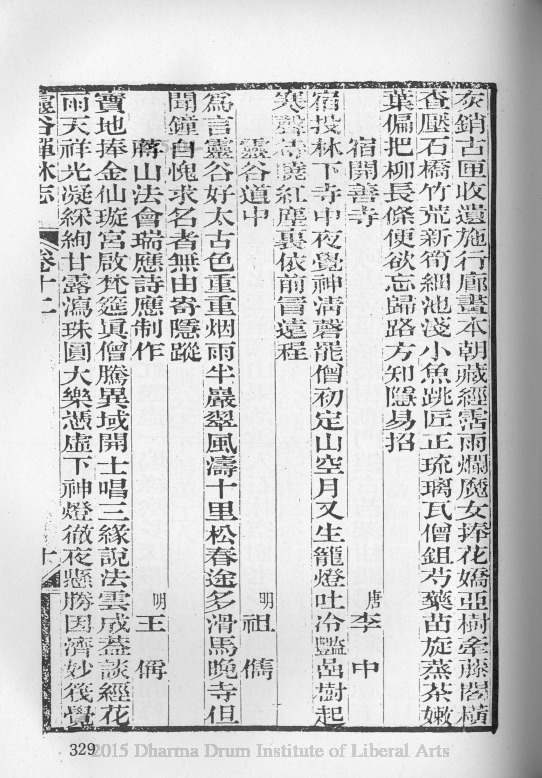 灰銷古匣收遺施行廊畫本朝藏經霑雨爛魔女捧花嬌亞樹牽藤閣橫
查壓石橋竹荒新筍細池淺小魚跳匠正琉璃瓦僧鉏芍藥苗旋蒸茶嫩
葉偏把柳長條便欲忘歸路方知隱易招
宿開善寺 唐 李中
宿投林下寺中夜覺神清磬罷僧初定山空月又生籠燈吐冷豔嵒樹起
寒聲待曉紅塵裏依前冒遠程
靈谷道中 明 祖儁
為言靈谷好太古色重重烟雨半巖翠風濤十里松春途多滑馬晚寺但
聞鐘自愧求名者無由寄隱蹤
蔣山法會瑞應詩應制作 明 王偁
寶地捧金仙璇宮啟梵筵真僧騰異域開士唱三緣說法雲成蓋談經花
雨天祥光凝綵絢甘露瀉珠圓大樂憑虛下神燈徹夜懸勝因濟妙筏覺
靈谷禪林志 卷十二 十
329
2015 Dharma Drum Institute of Liberal Arts